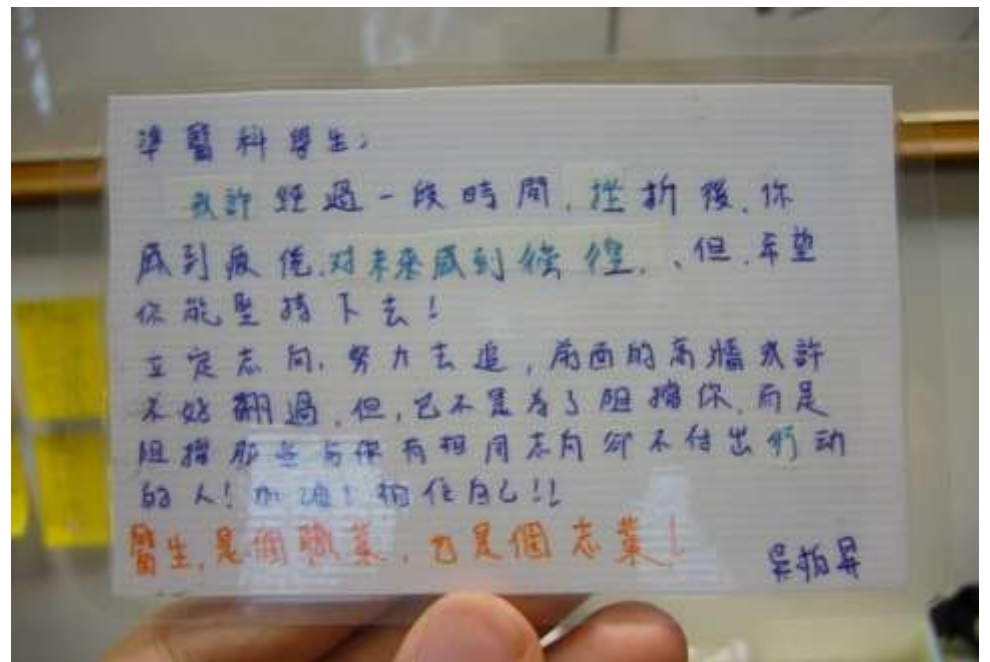 準醫科學生：
或許經過一段時間、挫折後、你
感到疲倦、对未來感到徬徨、、但、希望
你能堅持下去！
立定志向、努力去追，前面的高牆或許
不好翻過、但、它不是為了阻擋你、而是
阻擋那些与你有相同志向卻不付出行动
的人！加油！相信自己!!
醫生、是個職業、也是個志業！
吳柏昇